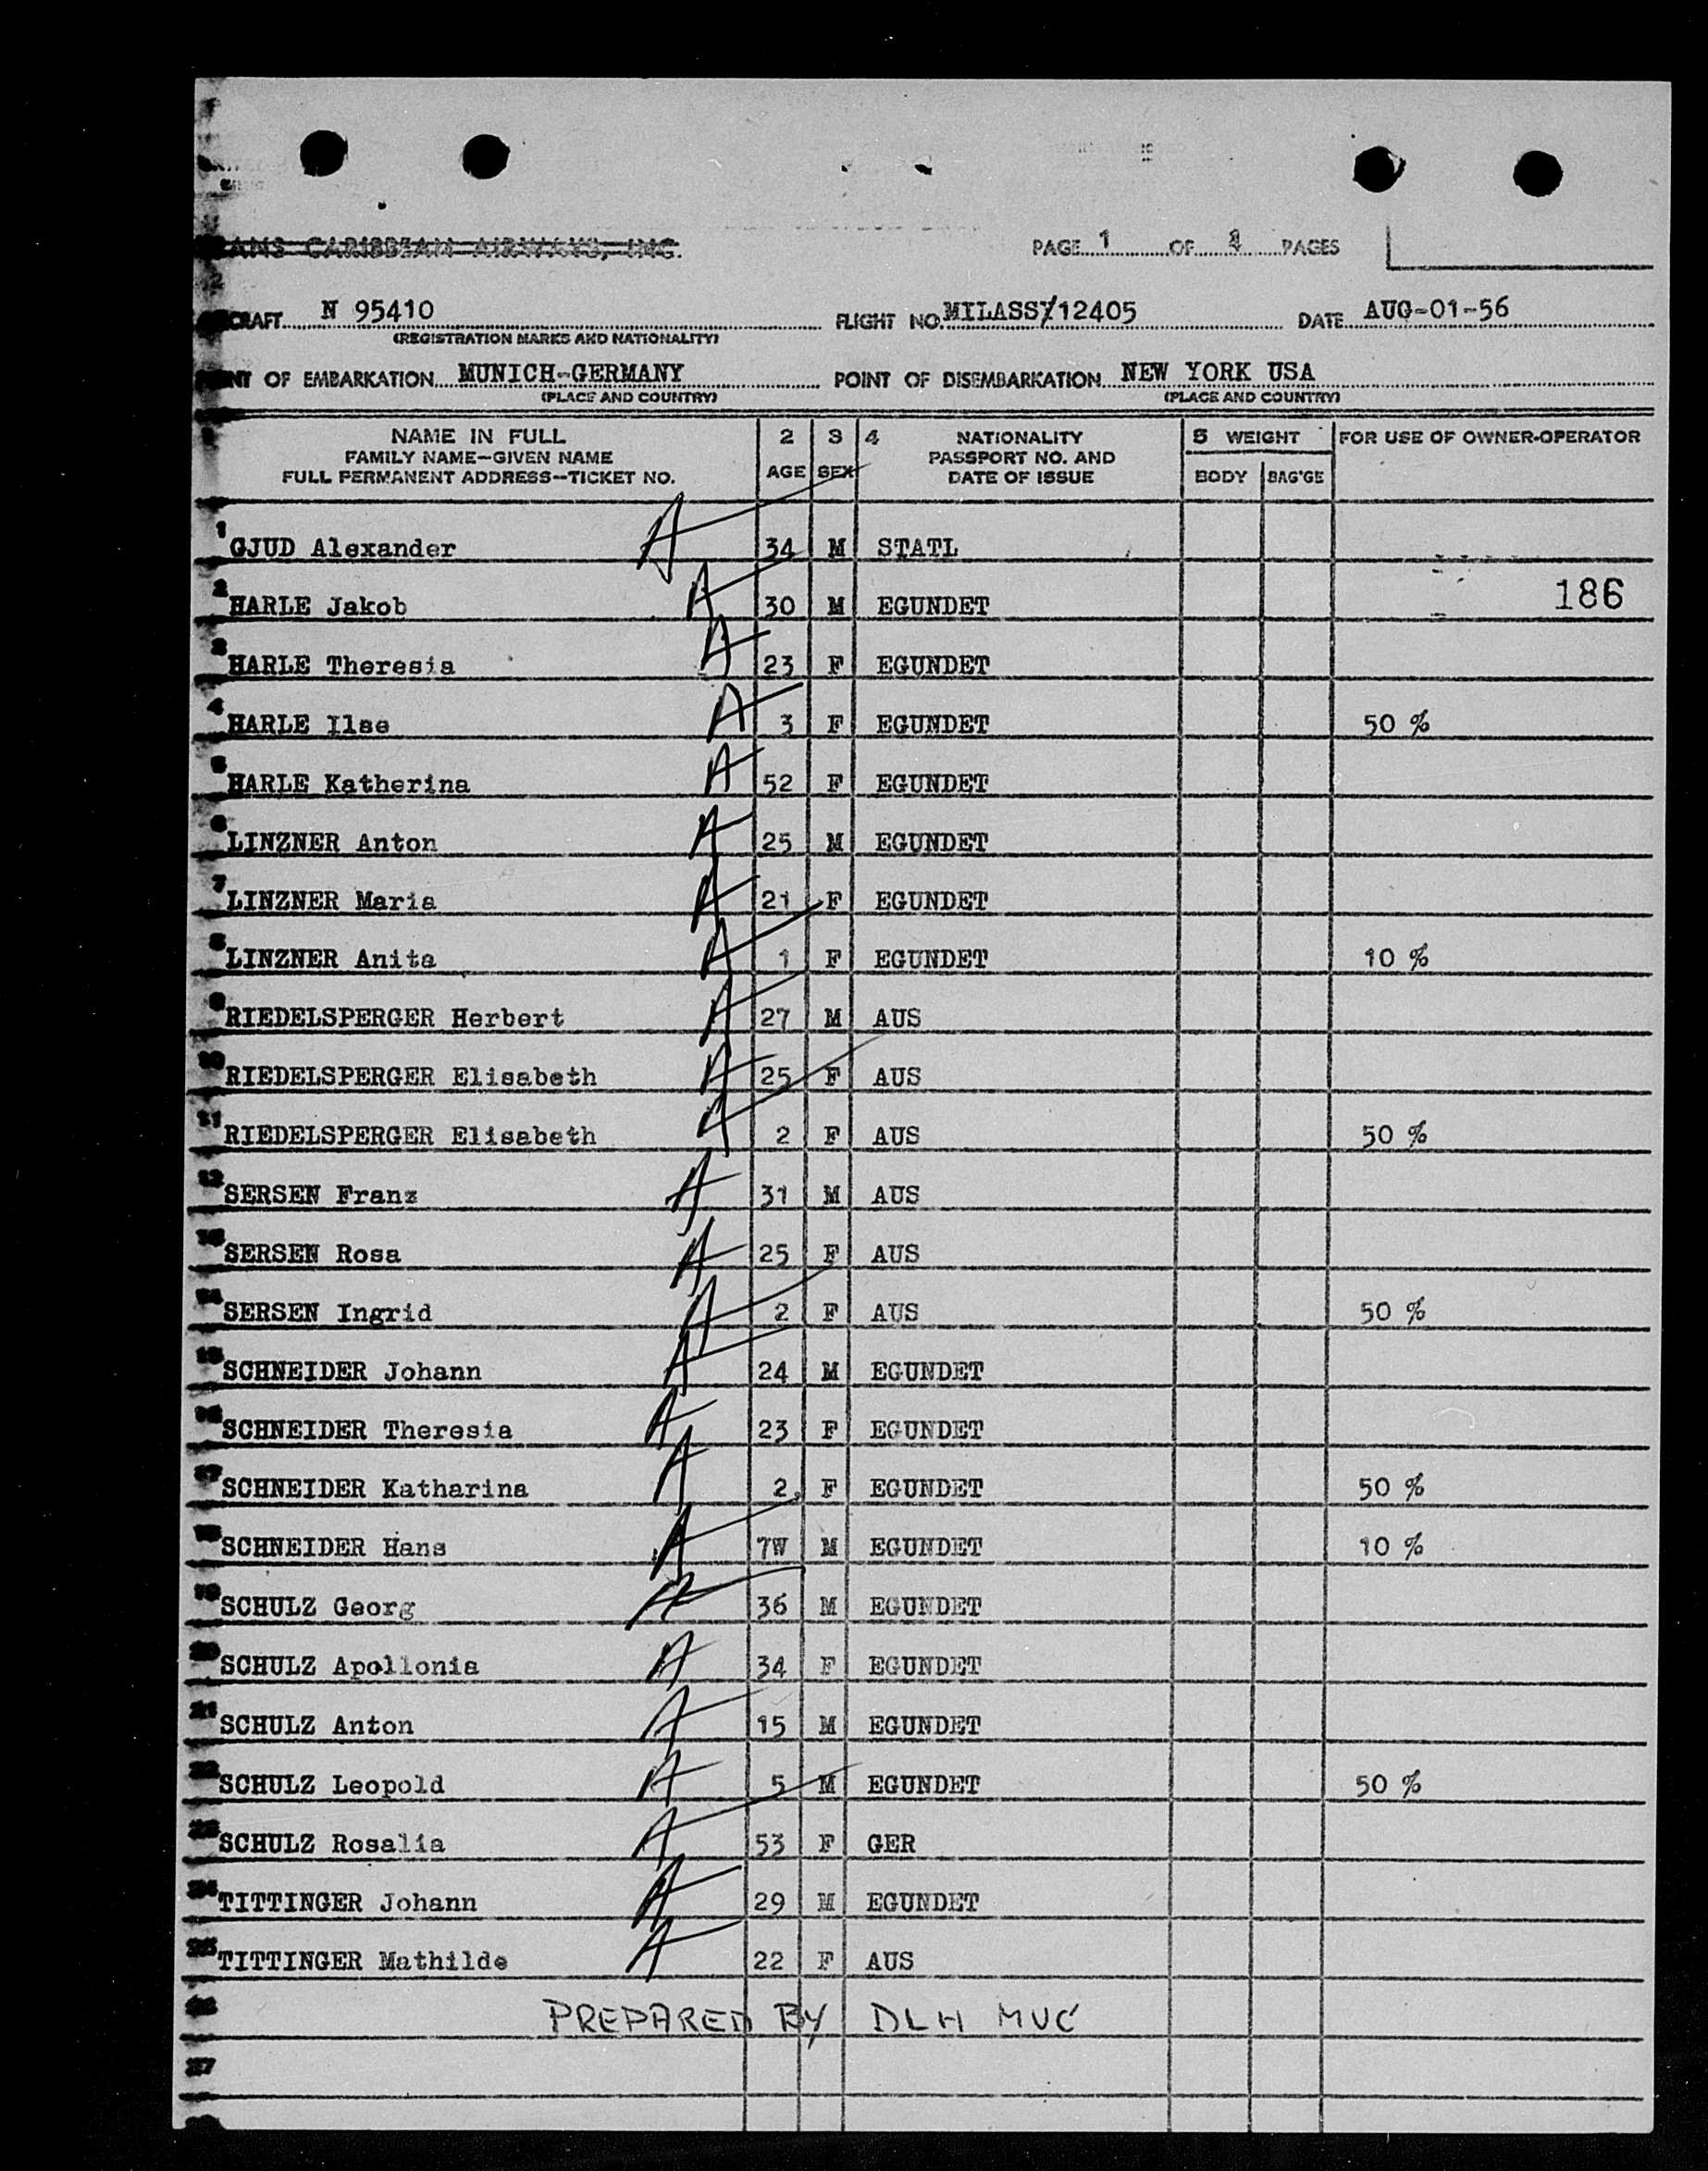 ANS CARIBBEAN AIRWAYS, INC.
PAGE 1 OF PAGES
CRAFT N 95410 FLIGHT NO. MILASSY/12405 DATE AUG-01-56
(REGISTRATION MARKS AND NATIONALITY)
NT OF EMBARKATION MUNICH-GERMANY POINT OF DISEMBARKATION NEW YORK USA
(PLACE AND COUNTRY) (PLACE AND COUNTRY)
NAME IN FULL 2 3 4 NATIONALITY 5 WEIGHT FOR USE OF OWNER-OPERATOR
FAMILY NAME-GIVEN NAME PASSPORT NO. AND
FULL PERMANENT ADDRESS-TICKET NO. AGE SEX DATE OF ISSUE BODY BAG'GE
1 GJUD Alexander A 34 M STATL
2 HARLE Jakob A 30 M EGUNDET 186
3 HARLE Theresia A 23 F EGUNDET
4 HARLE Ilse A 3 F EGUNDET 50 %
5 HARLE Katherina A 52 F EGUNDET
6 LINZNER Anton A 25 M EGUNDET
7 LINZNER Maria A 21 F EGUNDET
8 LINZNER Anita A 1 F EGUNDET 10 %
9 RIEDELSPERGER Herbert A 27 M AUS
10 RIEDELSPERGER Elisabeth A 25 F AUS
11 RIEDELSPERGER Elisabeth A 2 F AUS 50 %
12 SERSEN Franz A 31 M AUS
13 SERSEN Rosa A 25 F AUS
14 SERSEN Ingrid A 2 F AUS 50 %
15 SCHNEIDER Johann A 24 M EGUNDET
16 SCHNEIDER Theresia A 23 F EGUNDET
17 SCHNEIDER Katharina A 2 F EGUNDET 50 %
18 SCHNEIDER Hans A 7W M EGUNDET 10 %
19 SCHULZ Georg A 36 M EGUNDET
20 SCHULZ Apollonia A 34 F EGUNDET
21 SCHULZ Anton A 15 M EGUNDET
22 SCHULZ Leopold A 5 M EGUNDET 50 %
23 SCHULZ Rosalia A 53 F GER
24 TITTINGER Johann A 29 M EGUNDET
25 TITTINGER Mathilde A 22 F AUS
26 PREPARED BY DLH MUC
27